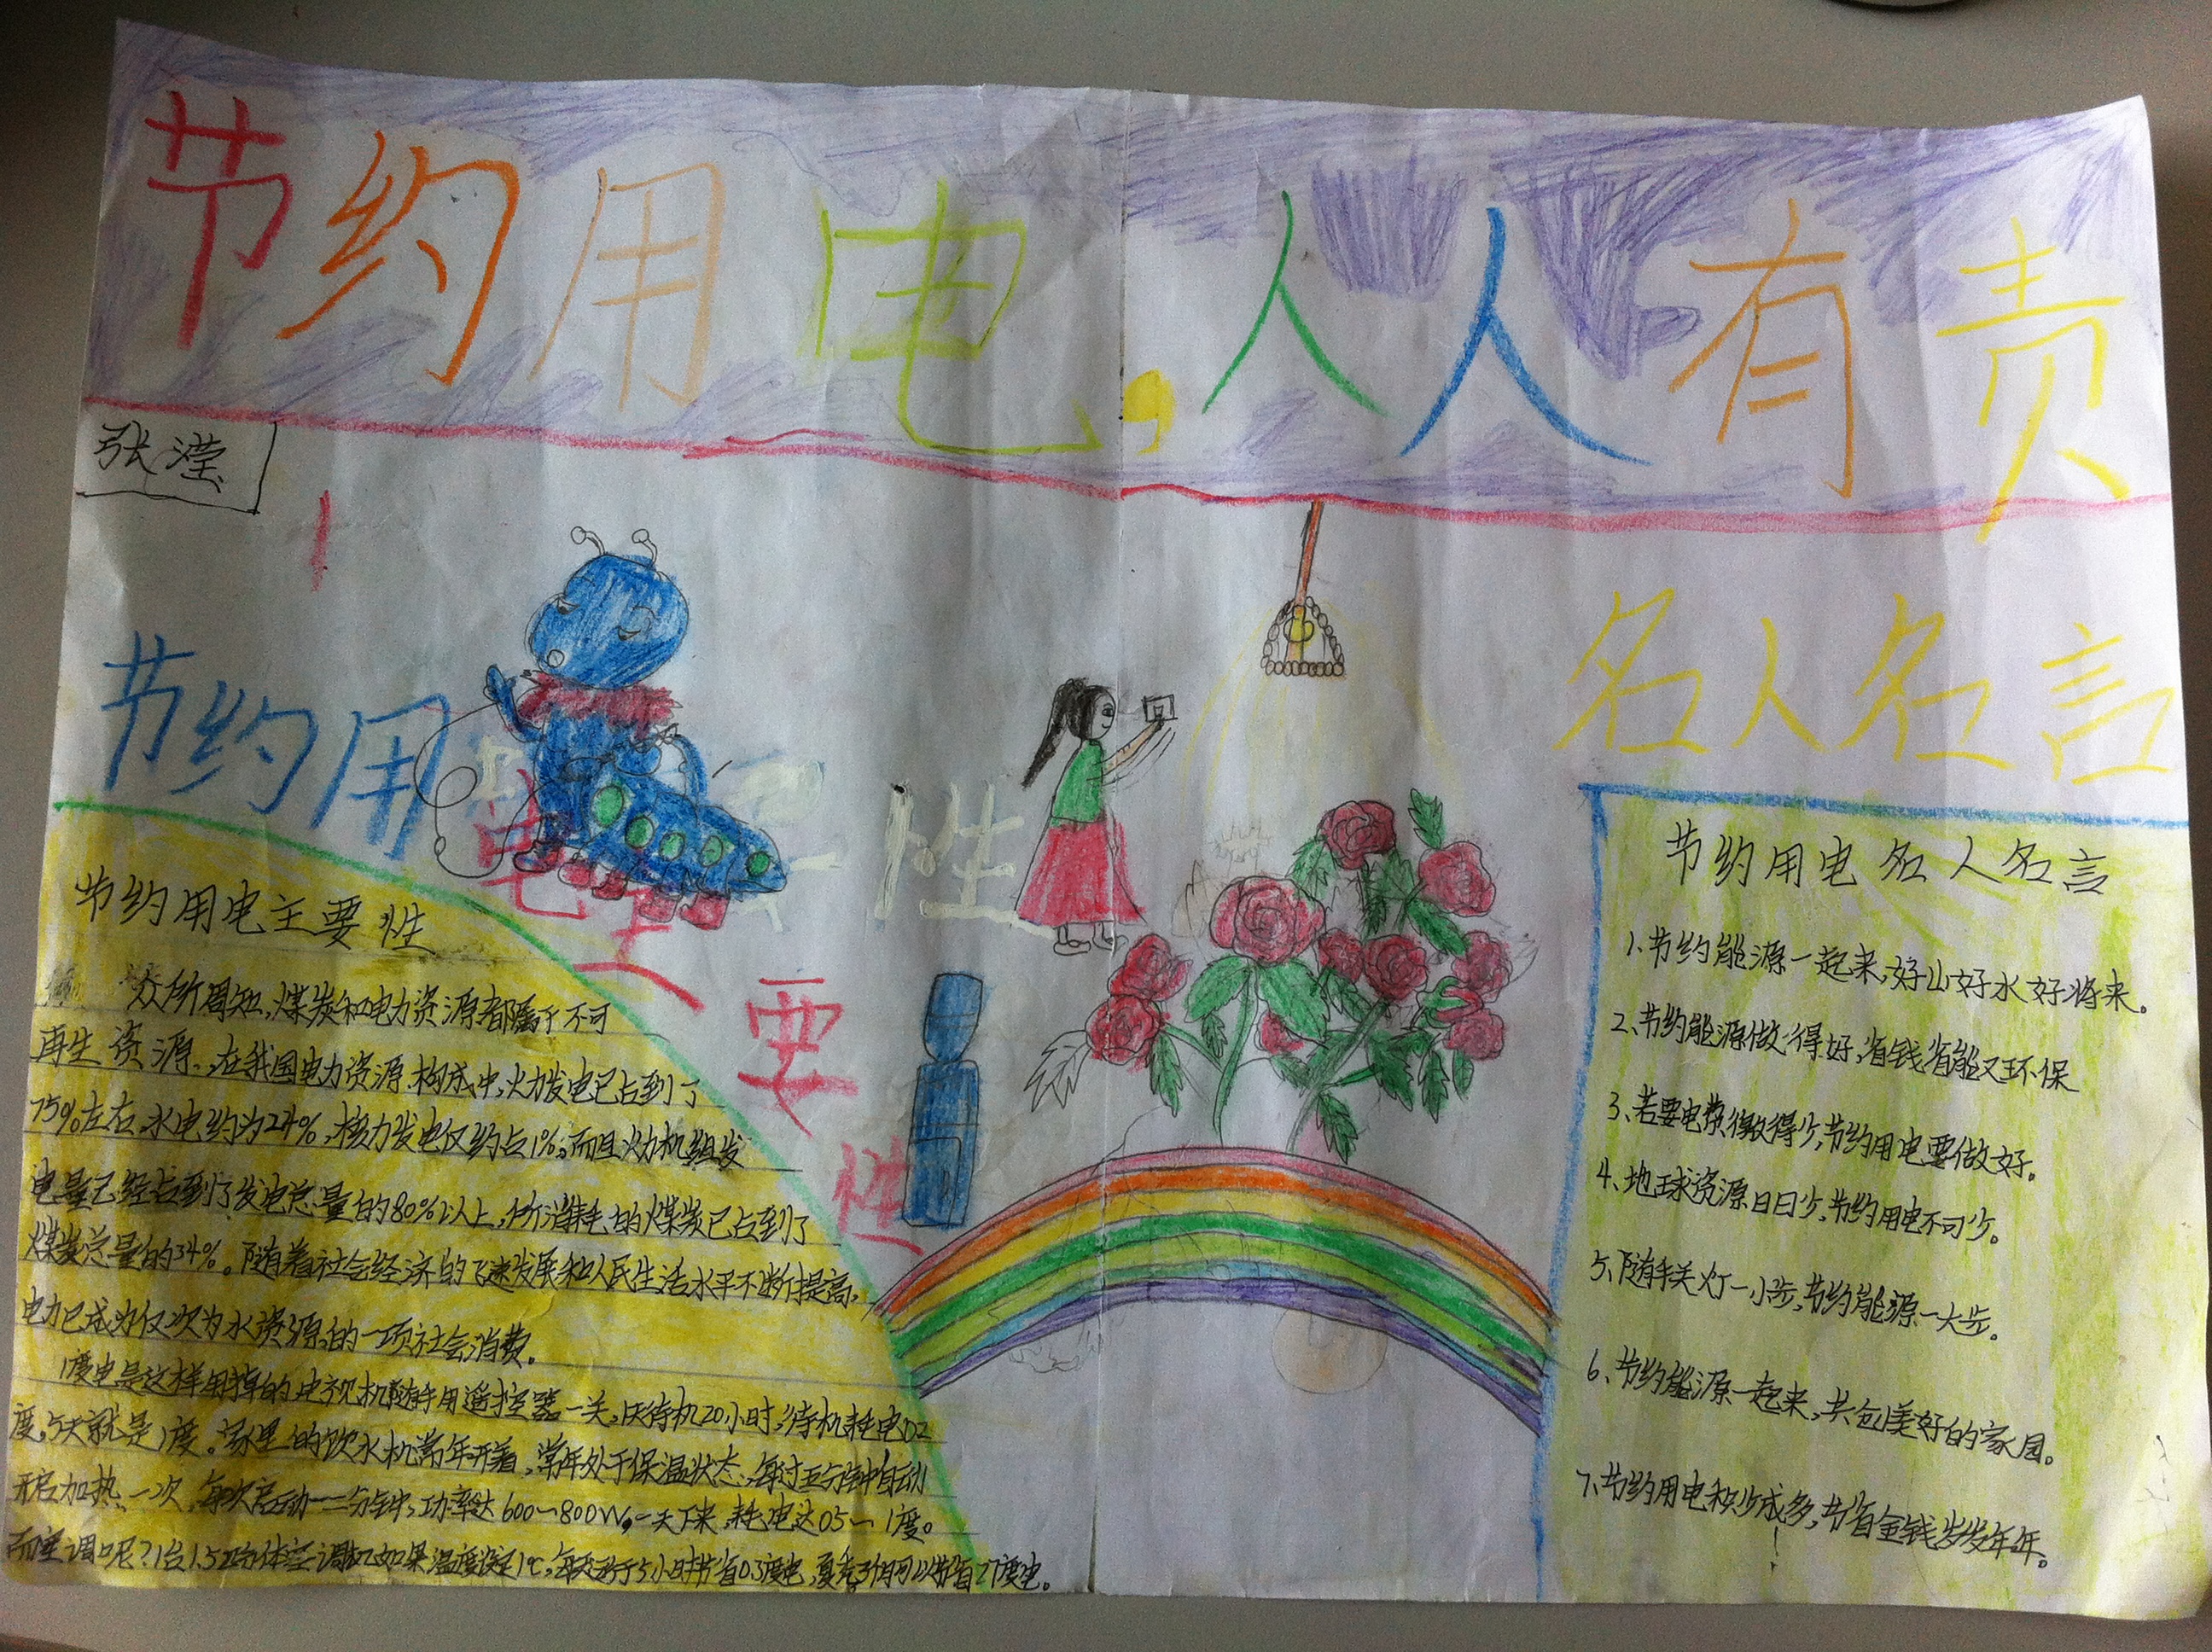 节约用电,人人有责
张滢
节约用电主要性
名人名言
节约用电主要性
众所周知,煤炭和电力资源都属于不可
再生资源,在我国电力资源构成中,火力发电已占到了
75%左右,水电约为24%,核力发电仅约占1%;而且火力机组发
电量已经占到了发电总量的80%以上,所消耗的煤炭已占到了
煤炭总量的34%。随着社会经济的飞速发展和人民生活水平不断提高,
电力已成为仅次为水资源的一项社会消费。
1度电是这样用掉的电视机随手用遥控器一关,1天待机20小时,待机耗电0.2
度,5天就是1度。家里的饮水机常年开着,常年处于保温状态,每过五分钟自动
开启加热一次,每次启动一二分钟,功率达600~800W,一天下来,耗电达05~1度。
而空调呢?1台1.5匹分体空调机如果温度设定1℃,每天运行5小时节省0.3度电,夏季3个月可以节省27度电。
节约用电名人名言
1、节约能源一起来,好山好水好将来。
2、节约能源做得好,省钱省能又环保
3、若要电费缴得少,节约用电要做好。
4、地球资源日日少,节约用电不可少。
5、随手关灯一小步,节约能源一大步。
6、节约能源一起来,共创美好的家园。
7、节约用电积少成多,节省金钱岁岁年年。